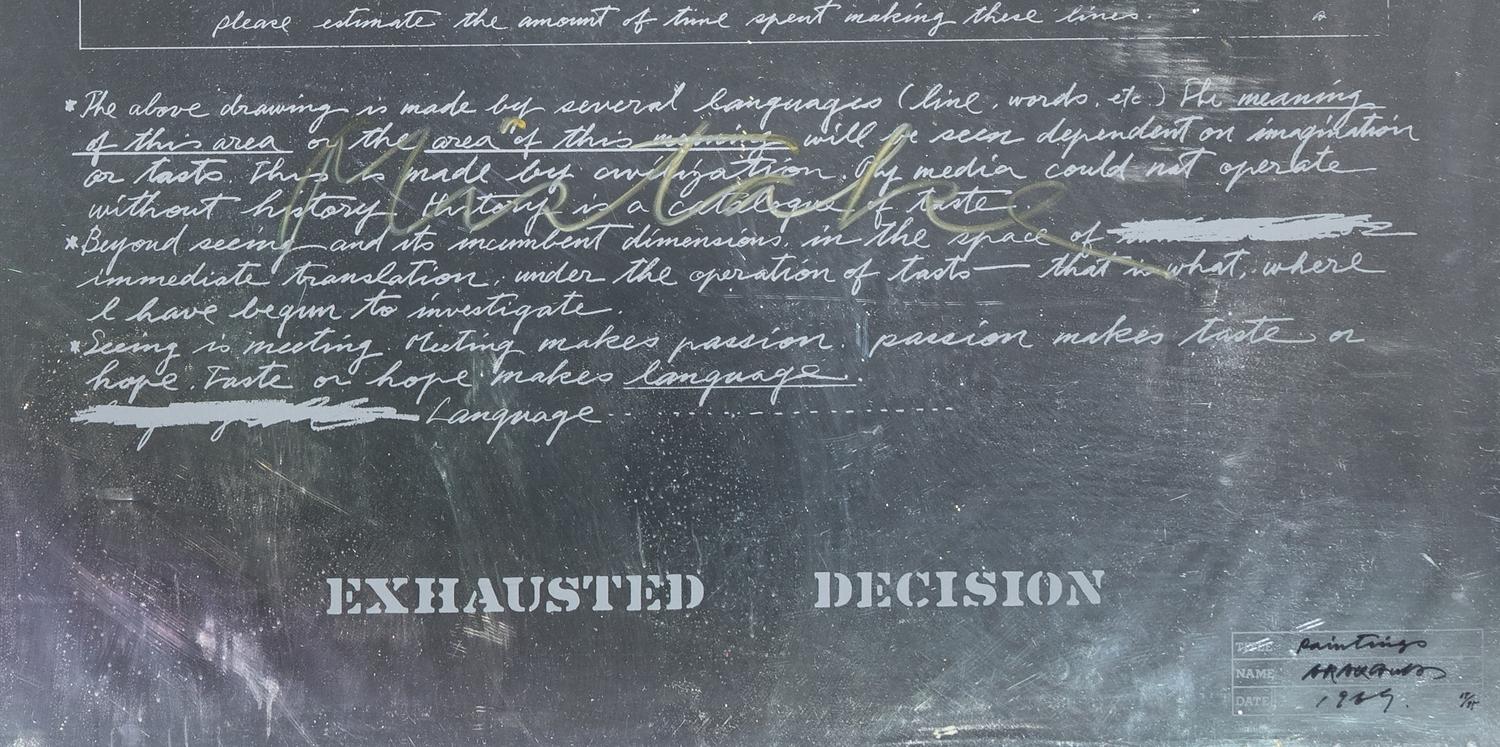 please estimate the amount of time spent making these lines.
* The above drawing is made by several languages (line, words, etc.) The meaning
of this area or the area of this meaning will be seen dependent on imagination
or taste. This is made by civilization. My media could not operate
without history. History is a catalogue of taste.
Mistake
* Beyond seeing and its incumbent dimensions, in the space of
immediate translation, under the operation of taste— that is what, where
I have begun to investigate.
* Seeing is meeting. Meeting makes passion. passion makes taste or
hope. Taste or hope makes language.
Language - - - - - - - - - - - - - - - -
EXHAUSTED DECISION
TITLE paintings
NAME ARAKAWA
DATE 1969.